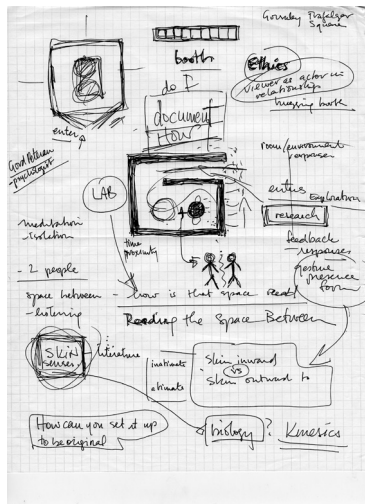 Gormley Trafalgar
Square
booths
Ethics
viewer as actor in
relationship
do I
document
How
enter
room/environment
responses
LAB
enters
Exploration
research
meditation
- isolation
time
proximity
feedback
responses
gesture
presence
form
- 2 people
space between - how is that space read
- listening
Reading the Space Between
SKIN
senses
literature
intimate
skin inward
vs
skin outward to
How can you set it up
to be original
biology ? Kinesics